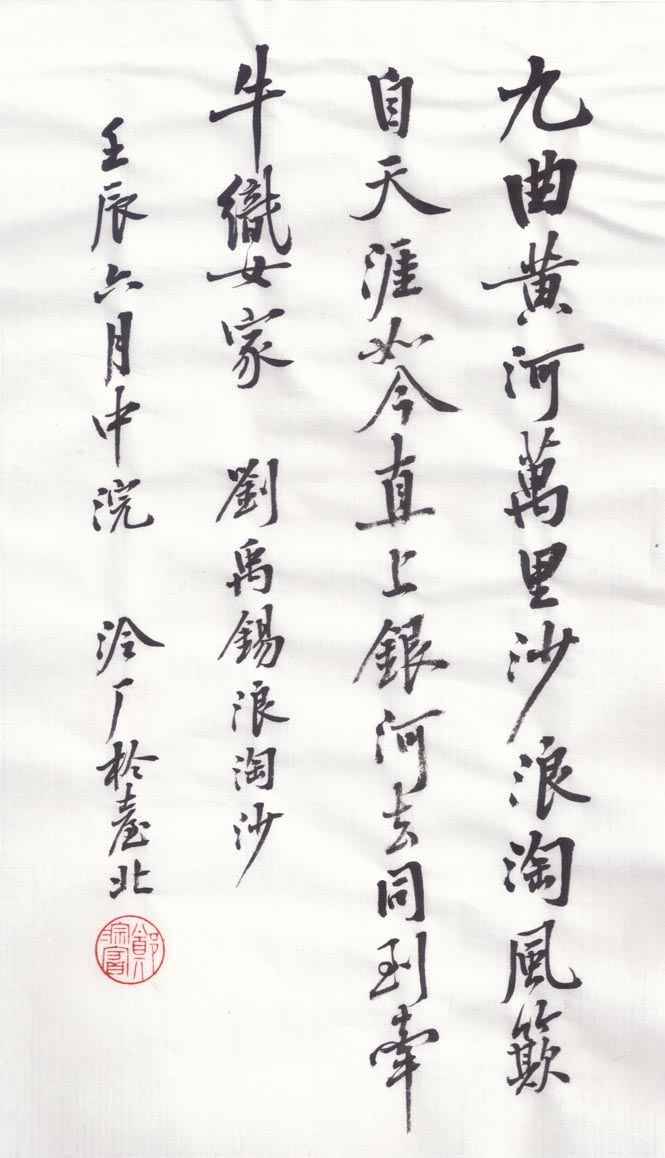 九曲黄河萬里沙浪淘風簸
自天涯如今直上銀河去同到牽
牛織女家 劉禹錫浪淘沙
壬辰六月中浣 泠厂於臺北